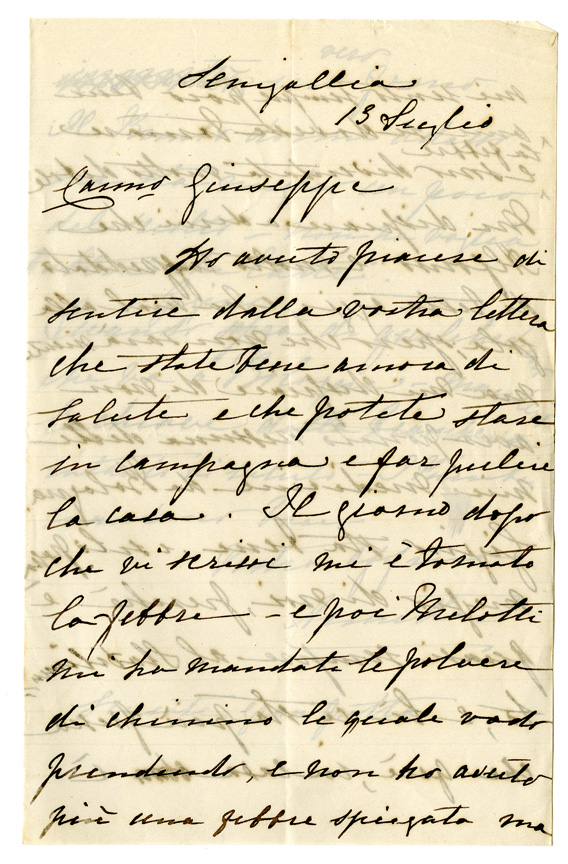 Senigallia
13 Luglio
Carmo Giuseppe
Ho avuto piacere di
sentire dalla vostra lettera
che state bene ancora di
salute e che potete stare
in campagna e far pulire
la casa. Il giorno dopo
che vi scrissi mi è tornato
la febbre - e poi Melotti
mi ha mandate le polvere
di chinino le quale vado
prendendo, e non ho avuto
più una febbre spiegata ma